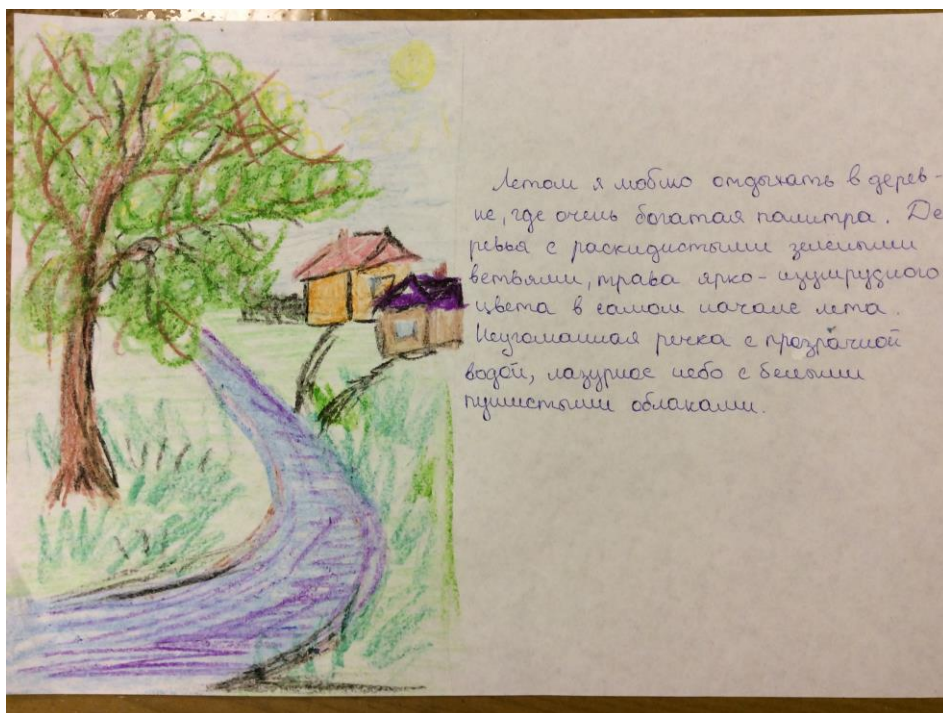 Летом я люблю отдыхать в дерев-
не, где очень богатая палитра. Де
ревья с раскидистыми зелеными
ветвями, трава ярко-изумрудного
цвета в самом начале лета.
Неугомонная речка с прозрачной
водой, лазурное небо с белыми
пушистыми облаками.